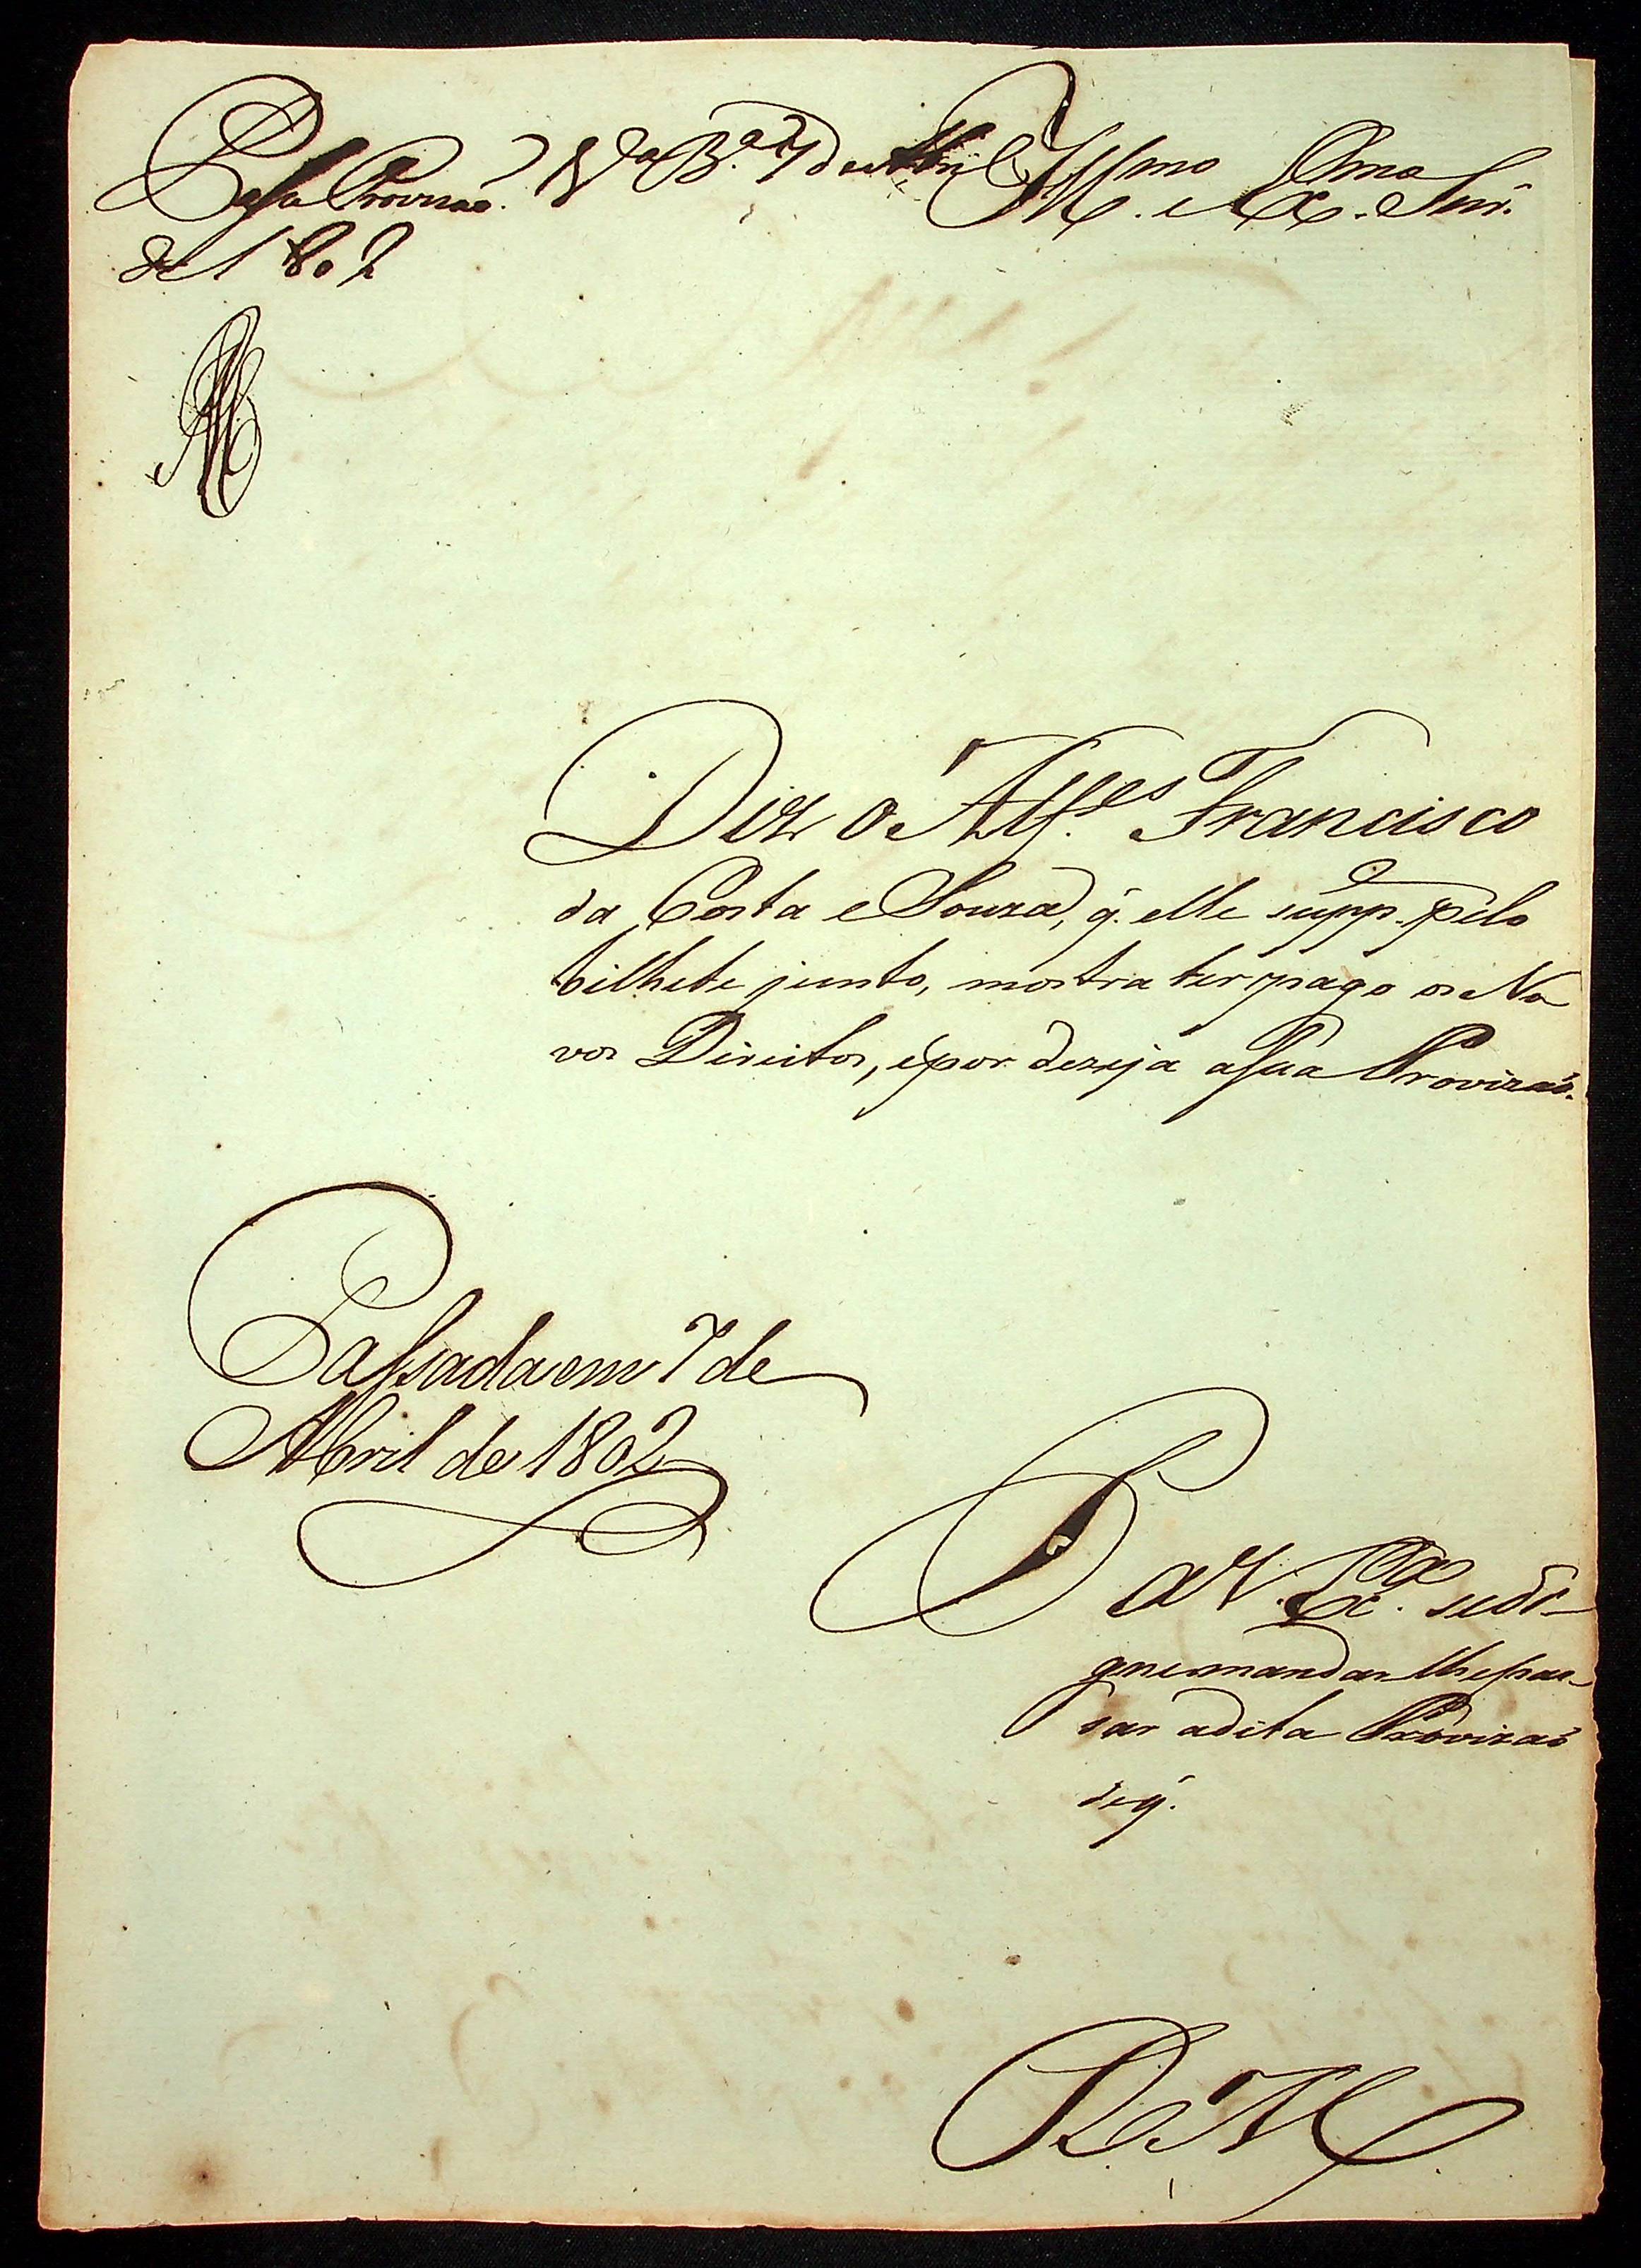 Passe Provizaõ. Va Bª 7 de Abril
de 1802
Illmo. e Exmo. Snr.
Diz o Alfes. Francisco
da Costa e Souza, q. elle supp.e pelo
bilhete junto, mostra ter pago os No
vos Direitos, e por dezeja a sua Provizaõ.
Passada em 7 de
Abril de 1802
P a V. Exa. se di-
gne mandar lhe pas-
sar a dita Provizaõ
deq.
E R M